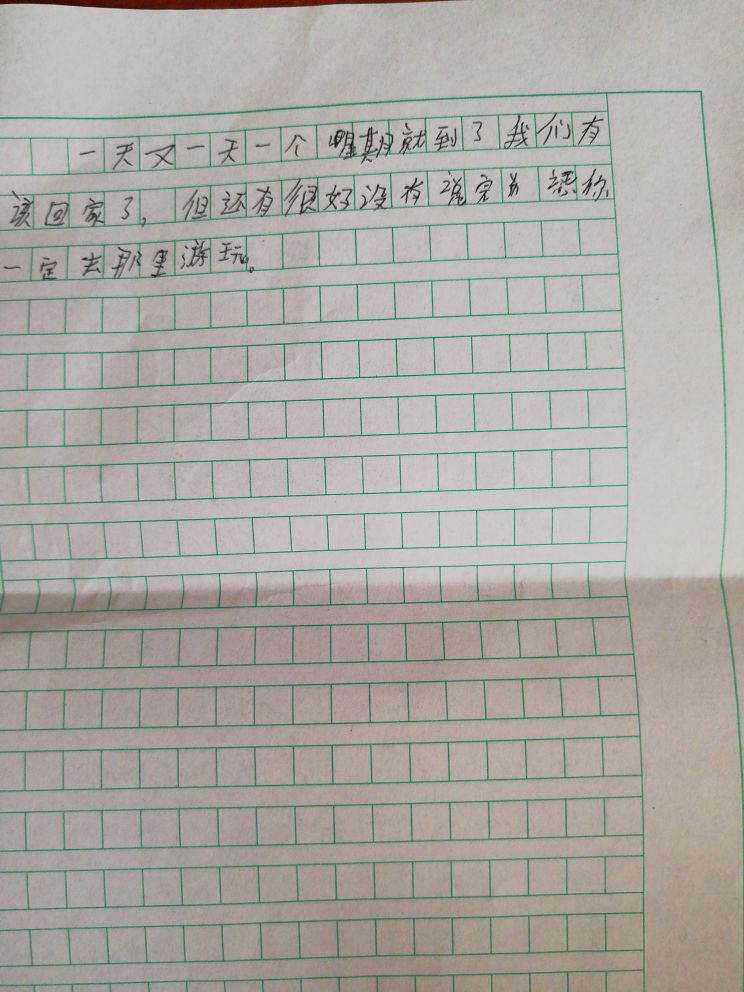 一天又一天一个星期就到了我们有
该回家了,但还有很好没有说完为请你
一定去那里游玩。